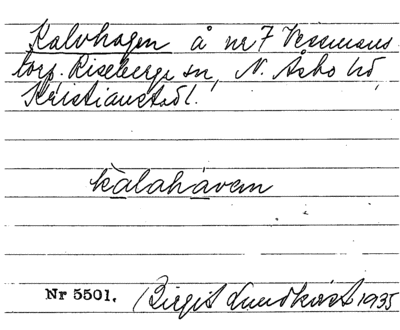 Kalvhagen å nr 7 Vessmans
torp. Riseberga sn, N. Åsbo hd
Kristianst.l.
kalahàvem
Nr 5501. Birgit Lundkvist 1935